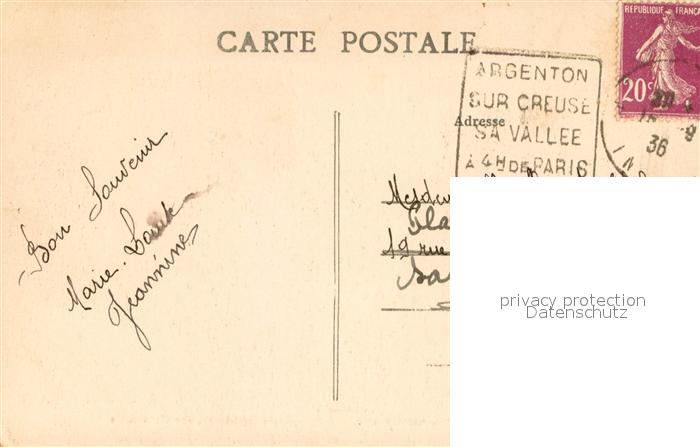 CARTE POSTALE
REPUBLIQUE FRANÇA
20c
ARGENTON
SUR CREUSE
SA VALLEE
À 4H DE PARIS
36
Adresse
Bon Souvenir
Marie-
Jeannine
19 rue
privacy protection
Datenschutz